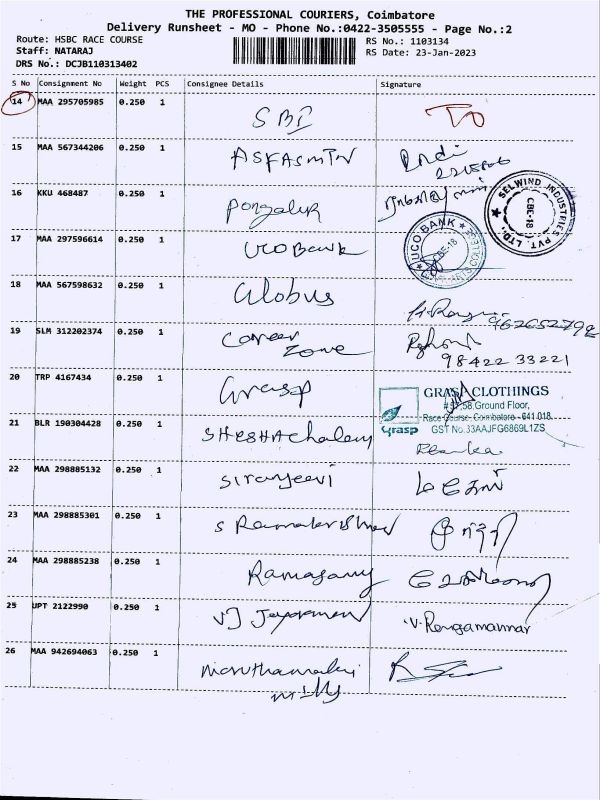 THE PROFESSIONAL COURIERS, Coimbatore
Delivery Runsheet - MO - Phone No.:0422-3505555 - Page No.:2
Route: HSBC RACE COURSE RS No.: 1103134
Staff: NATARAJ RS Date: 23-Jan-2023
DRS No.: DCJB110313402
S No Consignment No Weight PCS Consignee Details Signature
14 MAA 295705985 0.250 1 SBI
15 MAA 567344206 0.250 1
16 KKU 468487 0.250 1 Pongalur
SELWIND INDUSTRIES PVT. LTD.,
CBE-18
17 MAA 297596614 0.250 1 UCO Bank
UCO BANK
CBE-18
18 MAA 567598632 0.250 1 Globus
19 SLM 312202374 0.250 1 Career
Zone
98422 33221
20 TRP 4167434 0.250 1 Grasp
Grasp
GRASP CLOTHINGS
Ground Floor,
Race Course, Coimbatore - 641 018.
GST No.33AAJFG6869L1ZS
21 BLR 190304428 0.250 1
22 MAA 298885132 0.250 1 Siranjeevi
23 MAA 298885301 0.250 1
24 MAA 298885238 0.250 1 Ramasamy
25 UPT 2122990 0.250 1 VJ V. Rengamannar
26 MAA 942694063 0.250 1